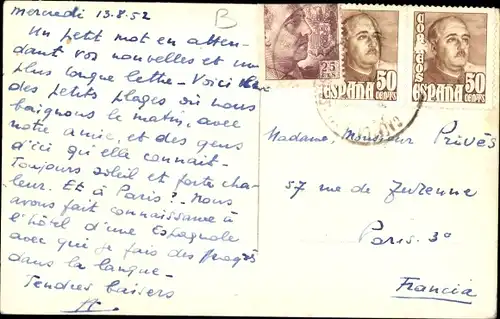 mercredi 13.8.52
Un petit mot en atten-
dant vos nouvelles et une
plus longue lettre - Voici l'une
des petits plages où nous
baignons le matin, avec
notre amie, et des gens
d'ici qu'elle connait-
Toujours soleil et forte cha-
leur. Et à Paris ? - Nous
avons fait connaissance à
l'hôtel d'une Espagnole
avec qui je fais des progrès
dans la langue -
Tendres baisers
B
25
CORREOS
ESPAÑA
50
CENTS
CORREOS
ESPAÑA
50
CENTS
Madame, Monsieur Privès
57 rue de Turenne
Paris. 3º
Francia